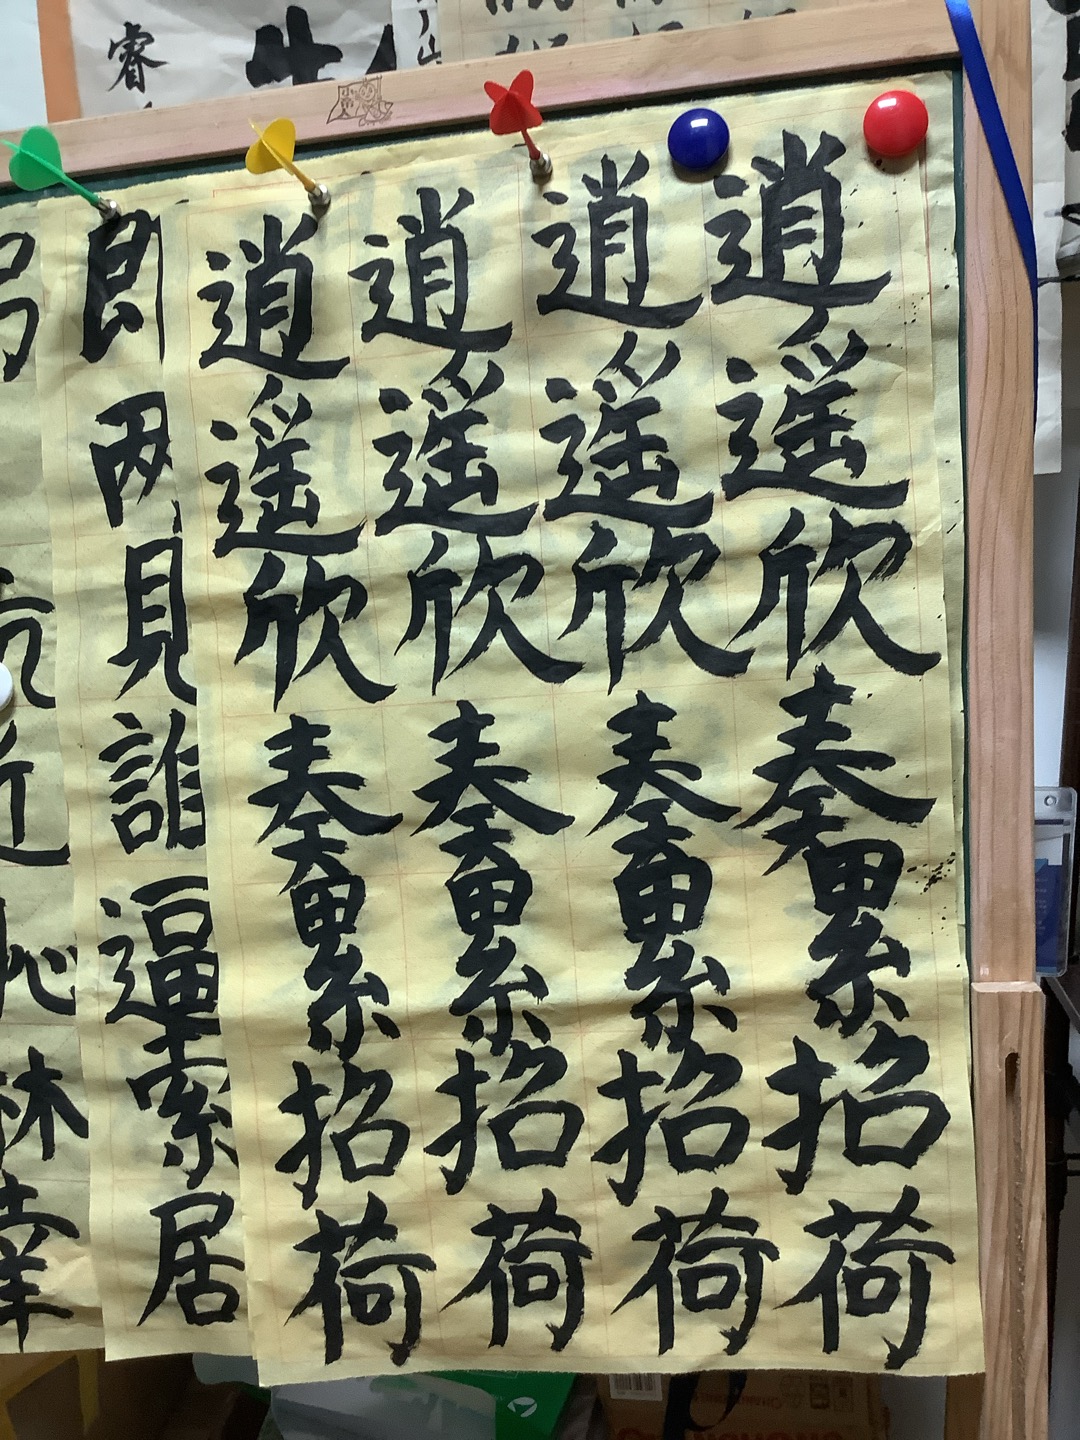 逍遥欣奏累招荷
逍遥欣奏累招荷
逍遥欣奏累招荷
逍遥欣奏累招荷
即两見誰逼索居
近恥林幸
睿